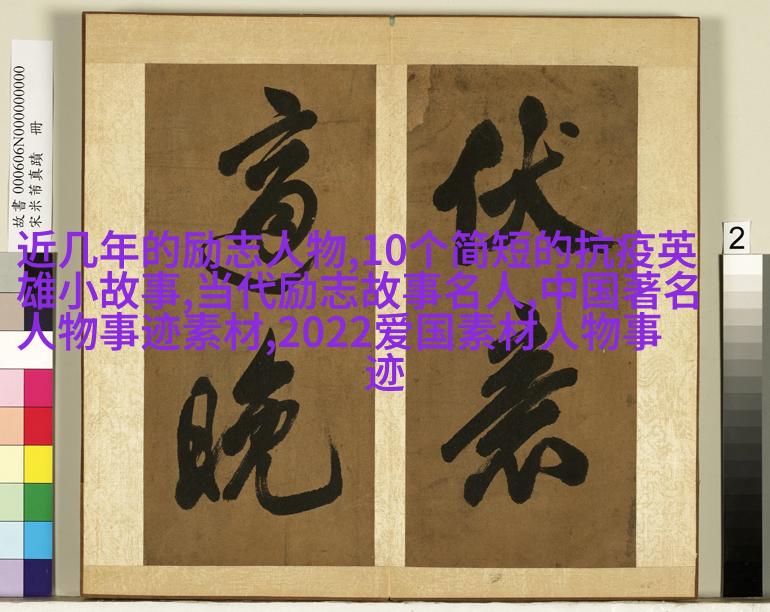 故書 000606N000000000
宋米芾真蹟 冊
2
近几年的励志人物,10个简短的抗疫英
雄小故事,当代励志故事名人,中国著名
人物事迹素材,2022爱国素材人物事
迹
伏
晚